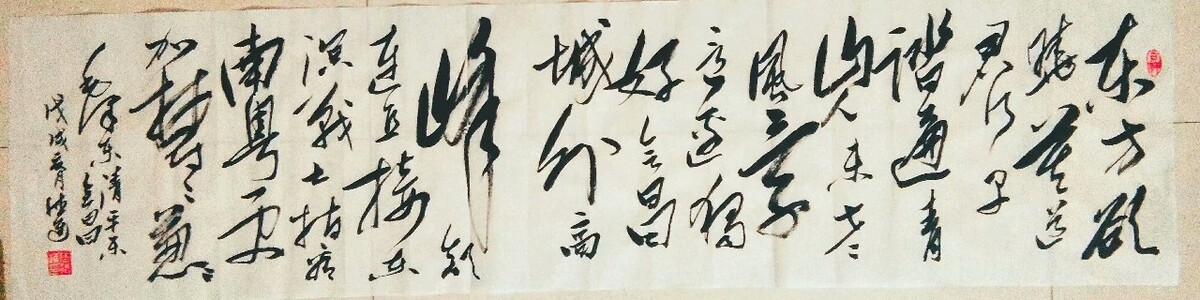 东方欲
晓莫道
君行早
踏遍青
山人未老
風景
這邊獨
好会昌
城外高
峰颠
连直接东
溟战士指看
南粤更
加郁々葱々
毛泽东清平乐
会昌
戊戌